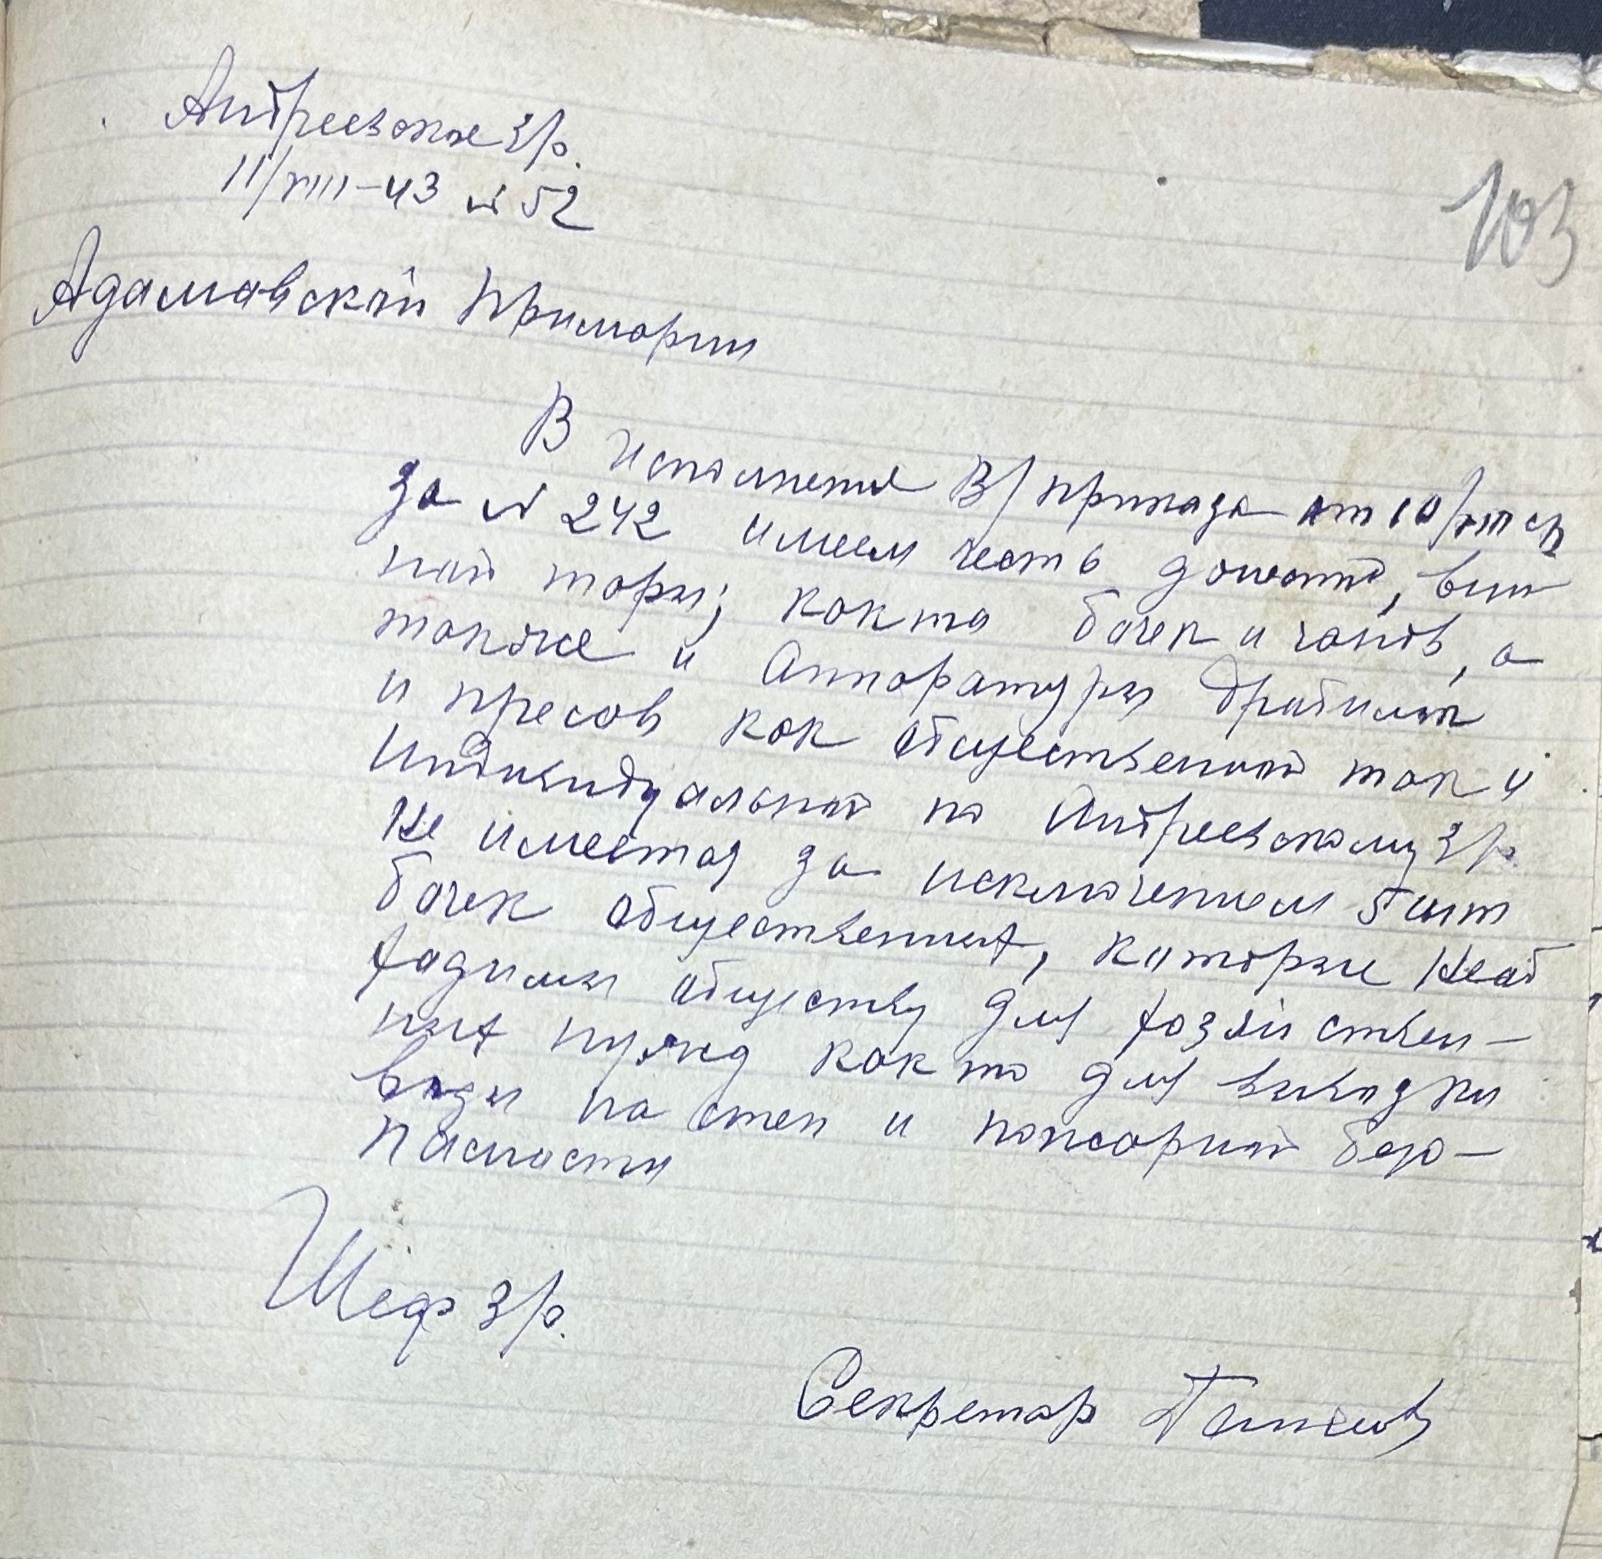 Андреевское Зр.
11/VIII-43 № 52
103
Адамавской Примории
В исполнения В/приказа от 10/VIII сг
за № 242 имеем честь донести, вин
ной тары; кокто бочек и чанов, а
также и Аппаратуры дробилок
и пресов как общественной так и
Индивидуальной по Андреевскому Зр.
Не имеется за исключением 5 шт
бочек общественных, каторые Необ
ходимы обществу для хозяйствен-
ных нужд как то для вывозки
воды на степ и пожарной безо-
пасности
Шеф Зр.
Секретар